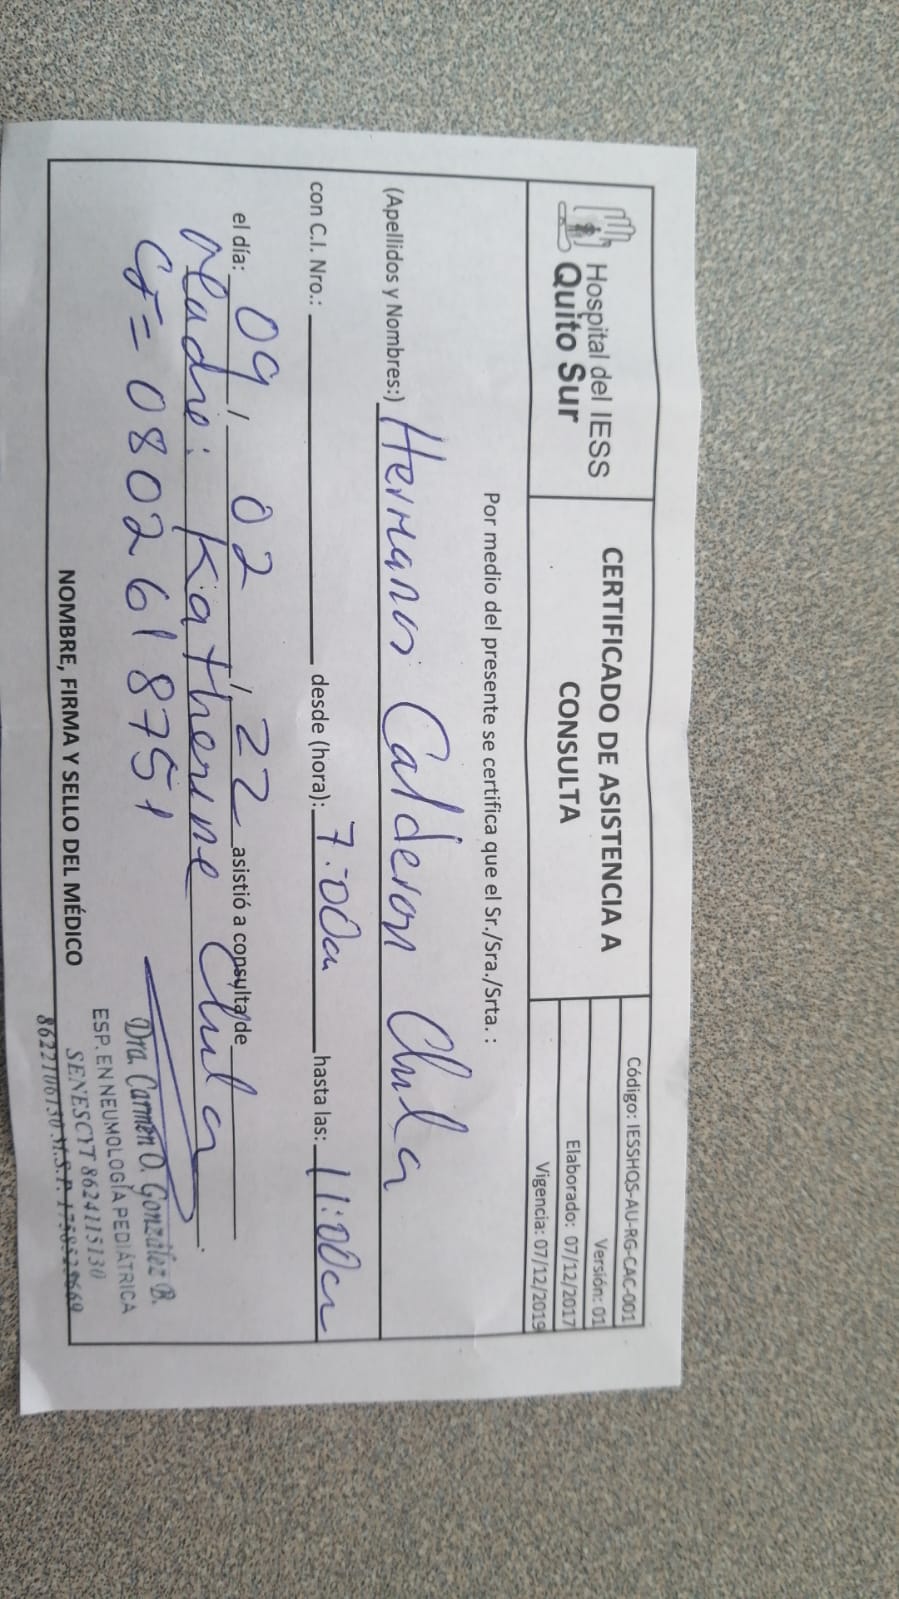 Hospital del IESS
Quito Sur
CERTIFICADO DE ASISTENCIA A
CONSULTA
Código: IESSHQS-AU-RG-CAC-001
Versión: 01
Elaborado: 07/12/2017
Vigencia: 07/12/2019
Por medio del presente se certifica que el Sr./Sra./Srta. :
(Apellidos y Nombres:) Hermanos Calderon Chila
con C.I. Nro.: desde (hora): 7:00am hasta las: 11:00am
el día: 09 / 02 / 22 asistió a consulta de
Madre: Katherine Chila
CI= 0802618751
Dra. Carmen O. González B.
ESP. EN NEUMOLOGÍA PEDIÁTRICA
SENESCYT 8624115130
8622106130 M.S.P.
NOMBRE, FIRMA Y SELLO DEL MÉDICO